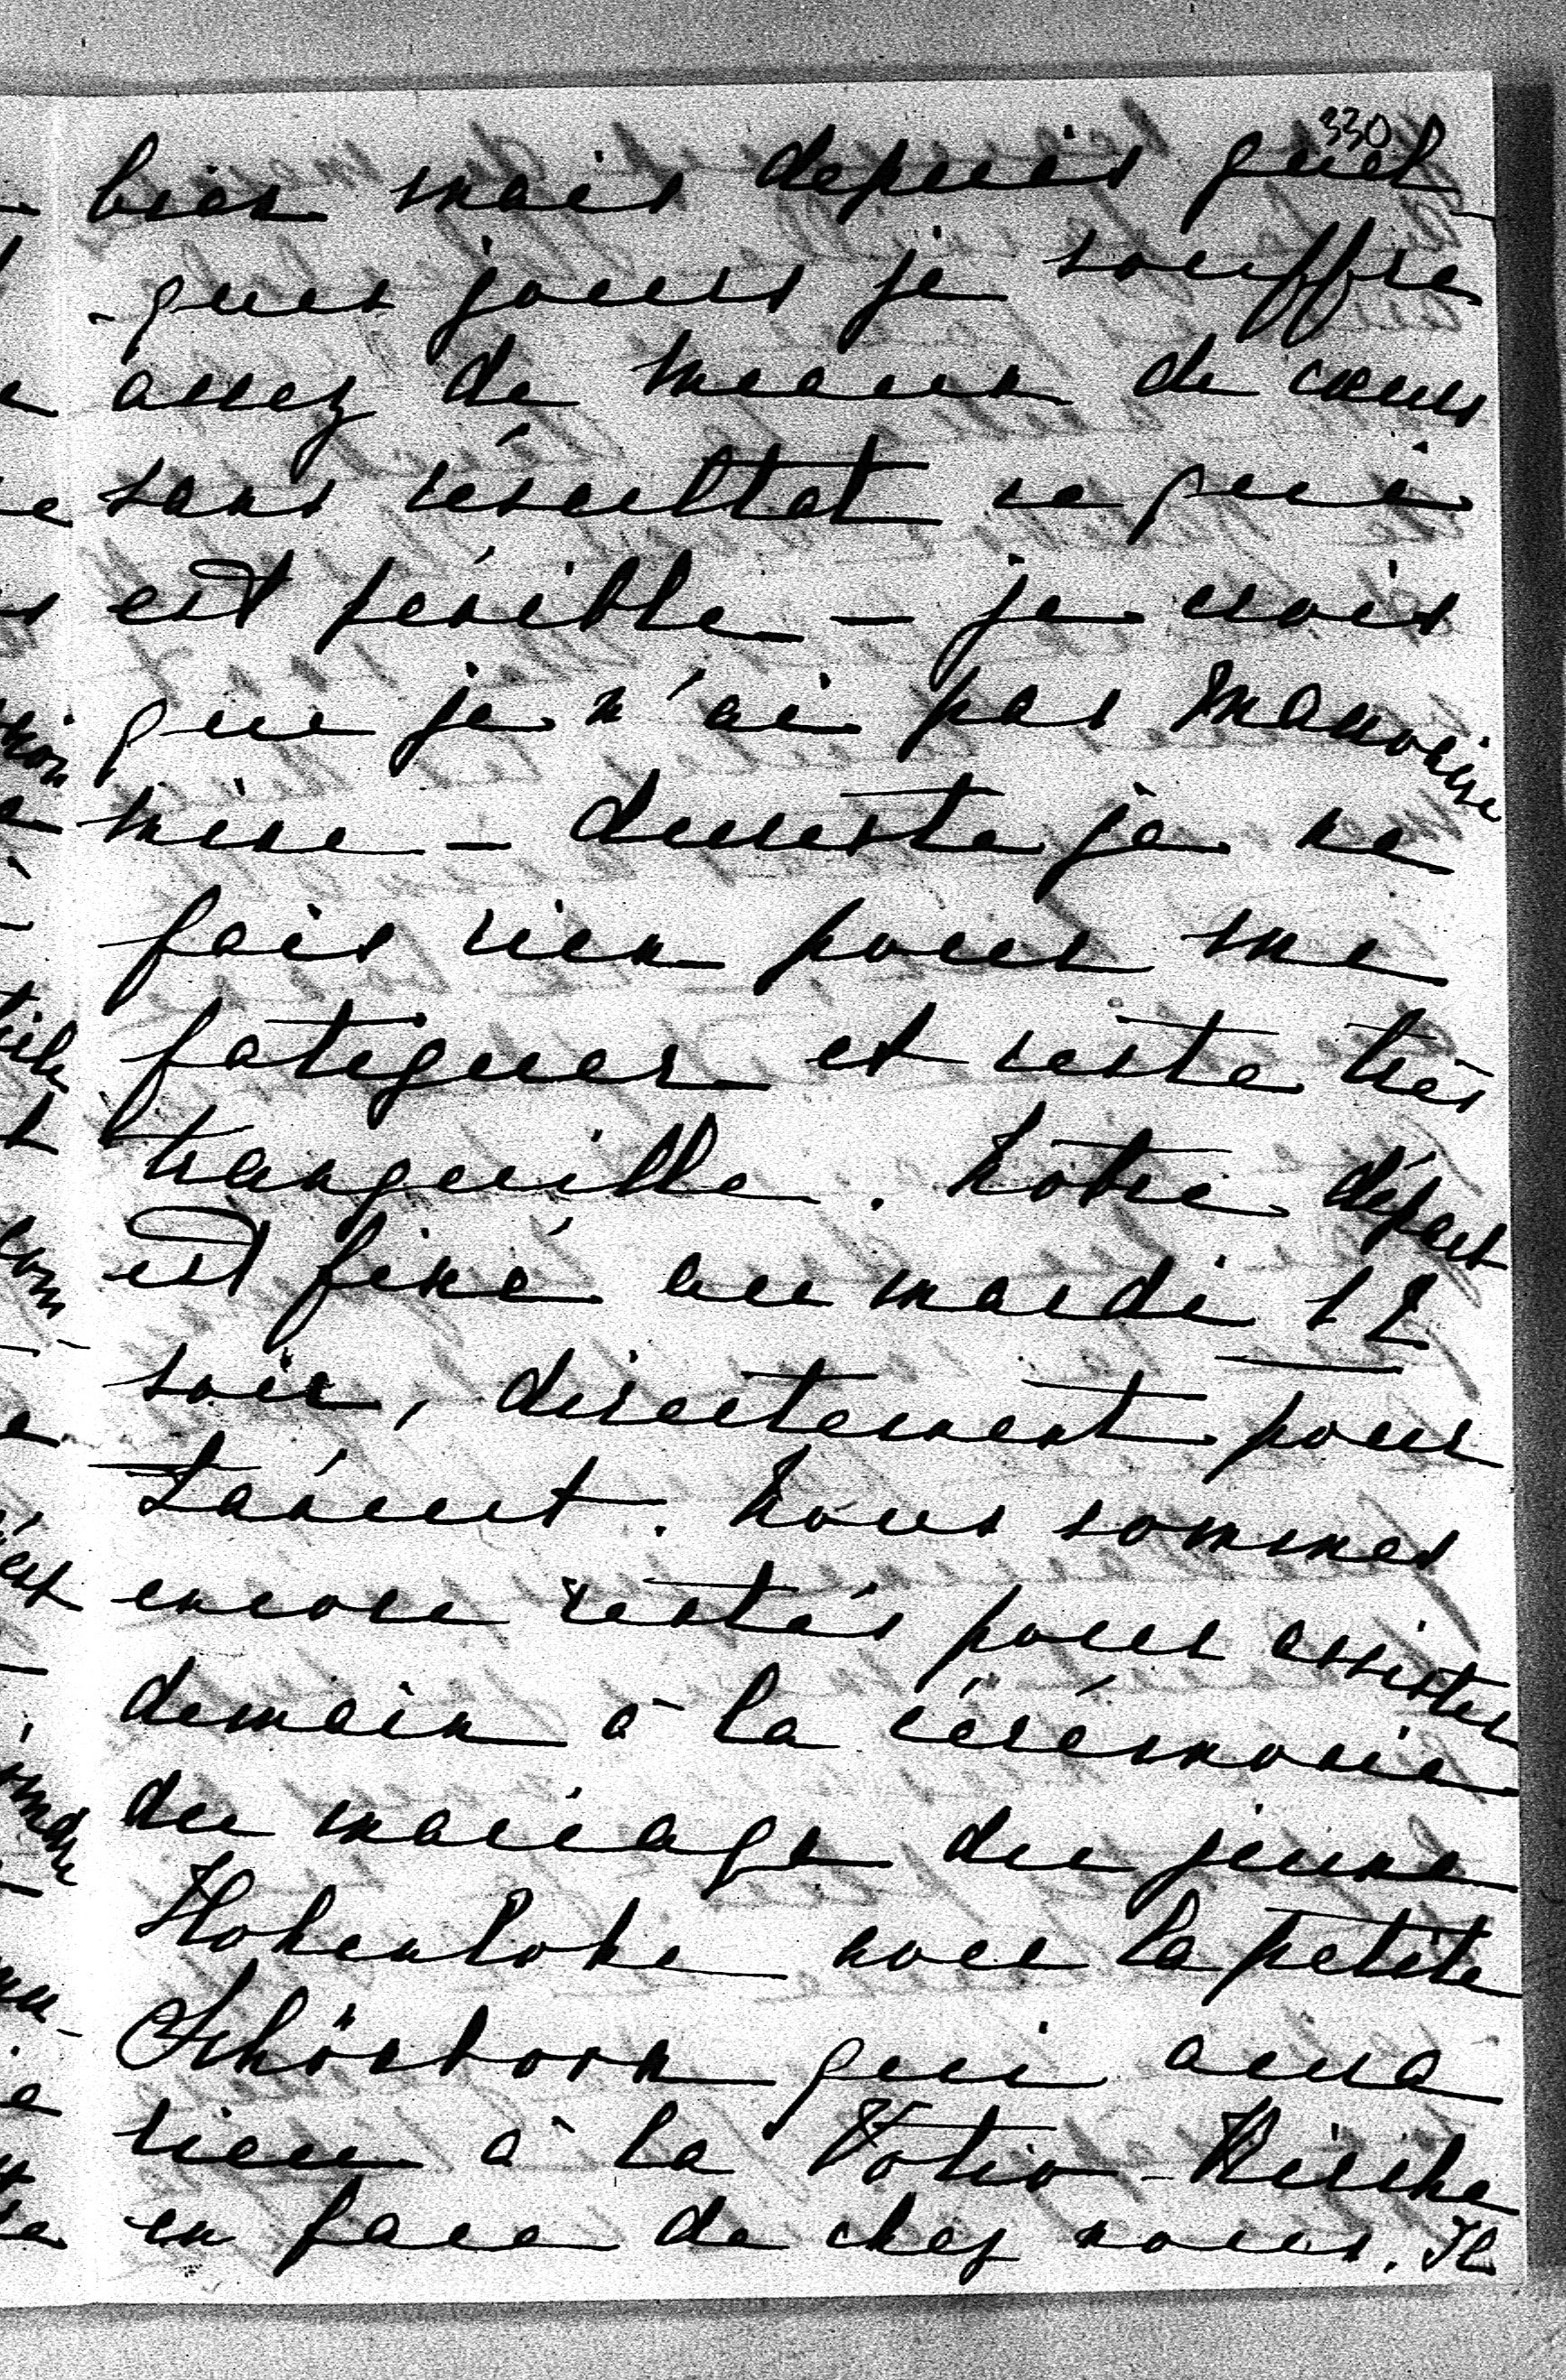 330
bien mais depuis quel-
-ques jours je souffre
assez de maux de cœur
sans résultat ce qui
est pénible – je crois
que je n'ai pas mauvaise
mine – dureste je ne
fais rien pour me
fatiguer et reste très
tranquille. Notre départ
est fixé au mardi 12
soir, directement pour
Lancut. Nous sommes
encore restés pour assister
demain à la cérémonie
du mariage du jeune
Hohenlohe avec la petite
Schönborn qui aura
lieu à la Votiv-Kirche
en face de chez nous. Il